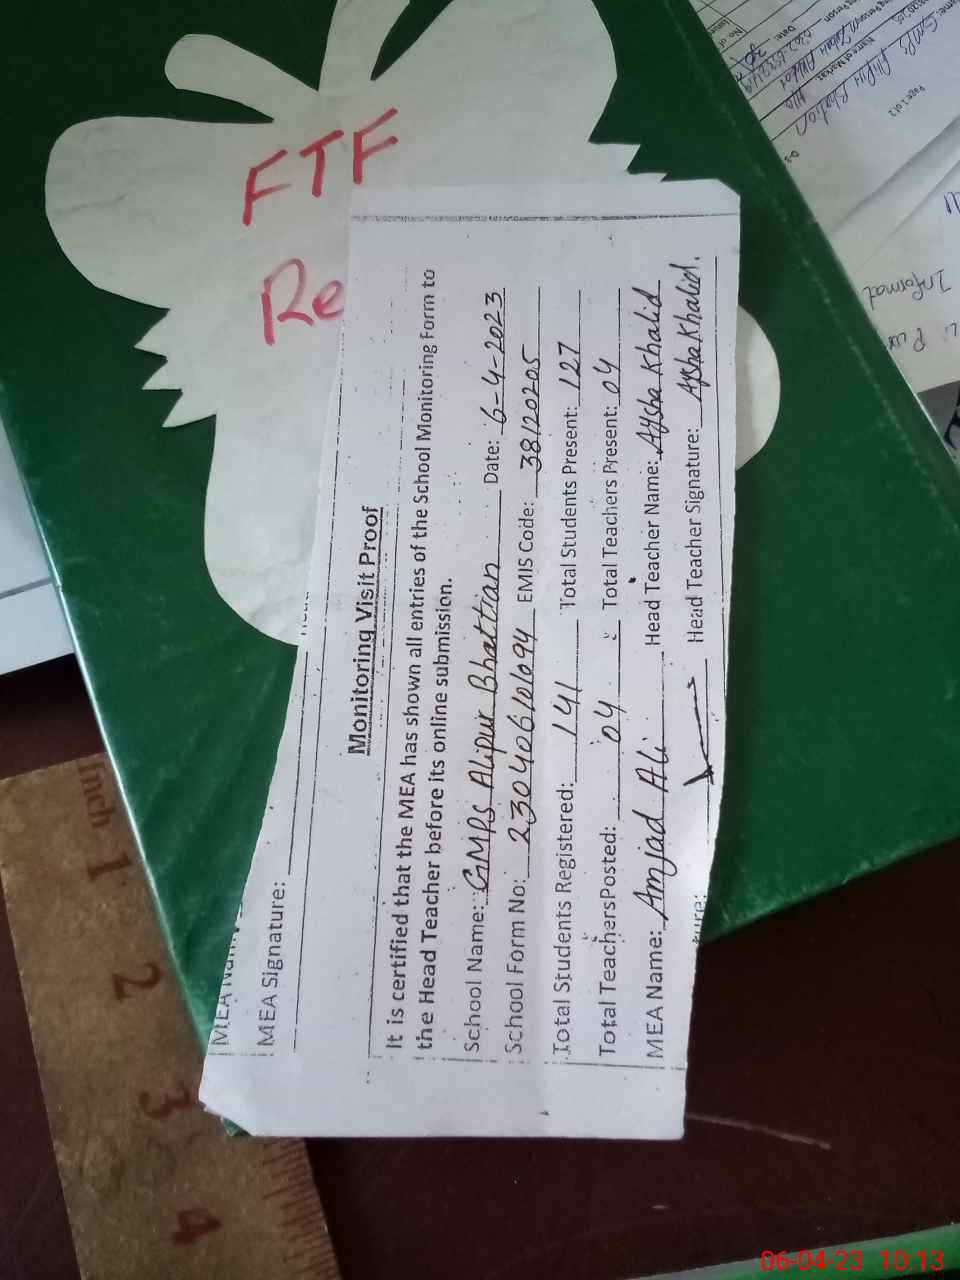 FTF
Re
MEA Signature:
Monitoring Visit Proof
It is certified that the MEA has shown all entries of the School Monitoring Form to
the Head Teacher before its online submission.
School Name: GMPS Alipur Bhattian Date: 6-4-2023
School Form No: 230406101094 EMIS Code: 38120205
Total Students Registered: 141 Total Students Present: 127
Total TeachersPosted: 04 Total Teachers Present: 04
MEA Name: Amjad Ali Head Teacher Name: Aysha Khalid
Head Teacher Signature: Aysha Khalid.
Inch 1
2
3
4
Page 1 of 2
Informat
06-04-23 10:13